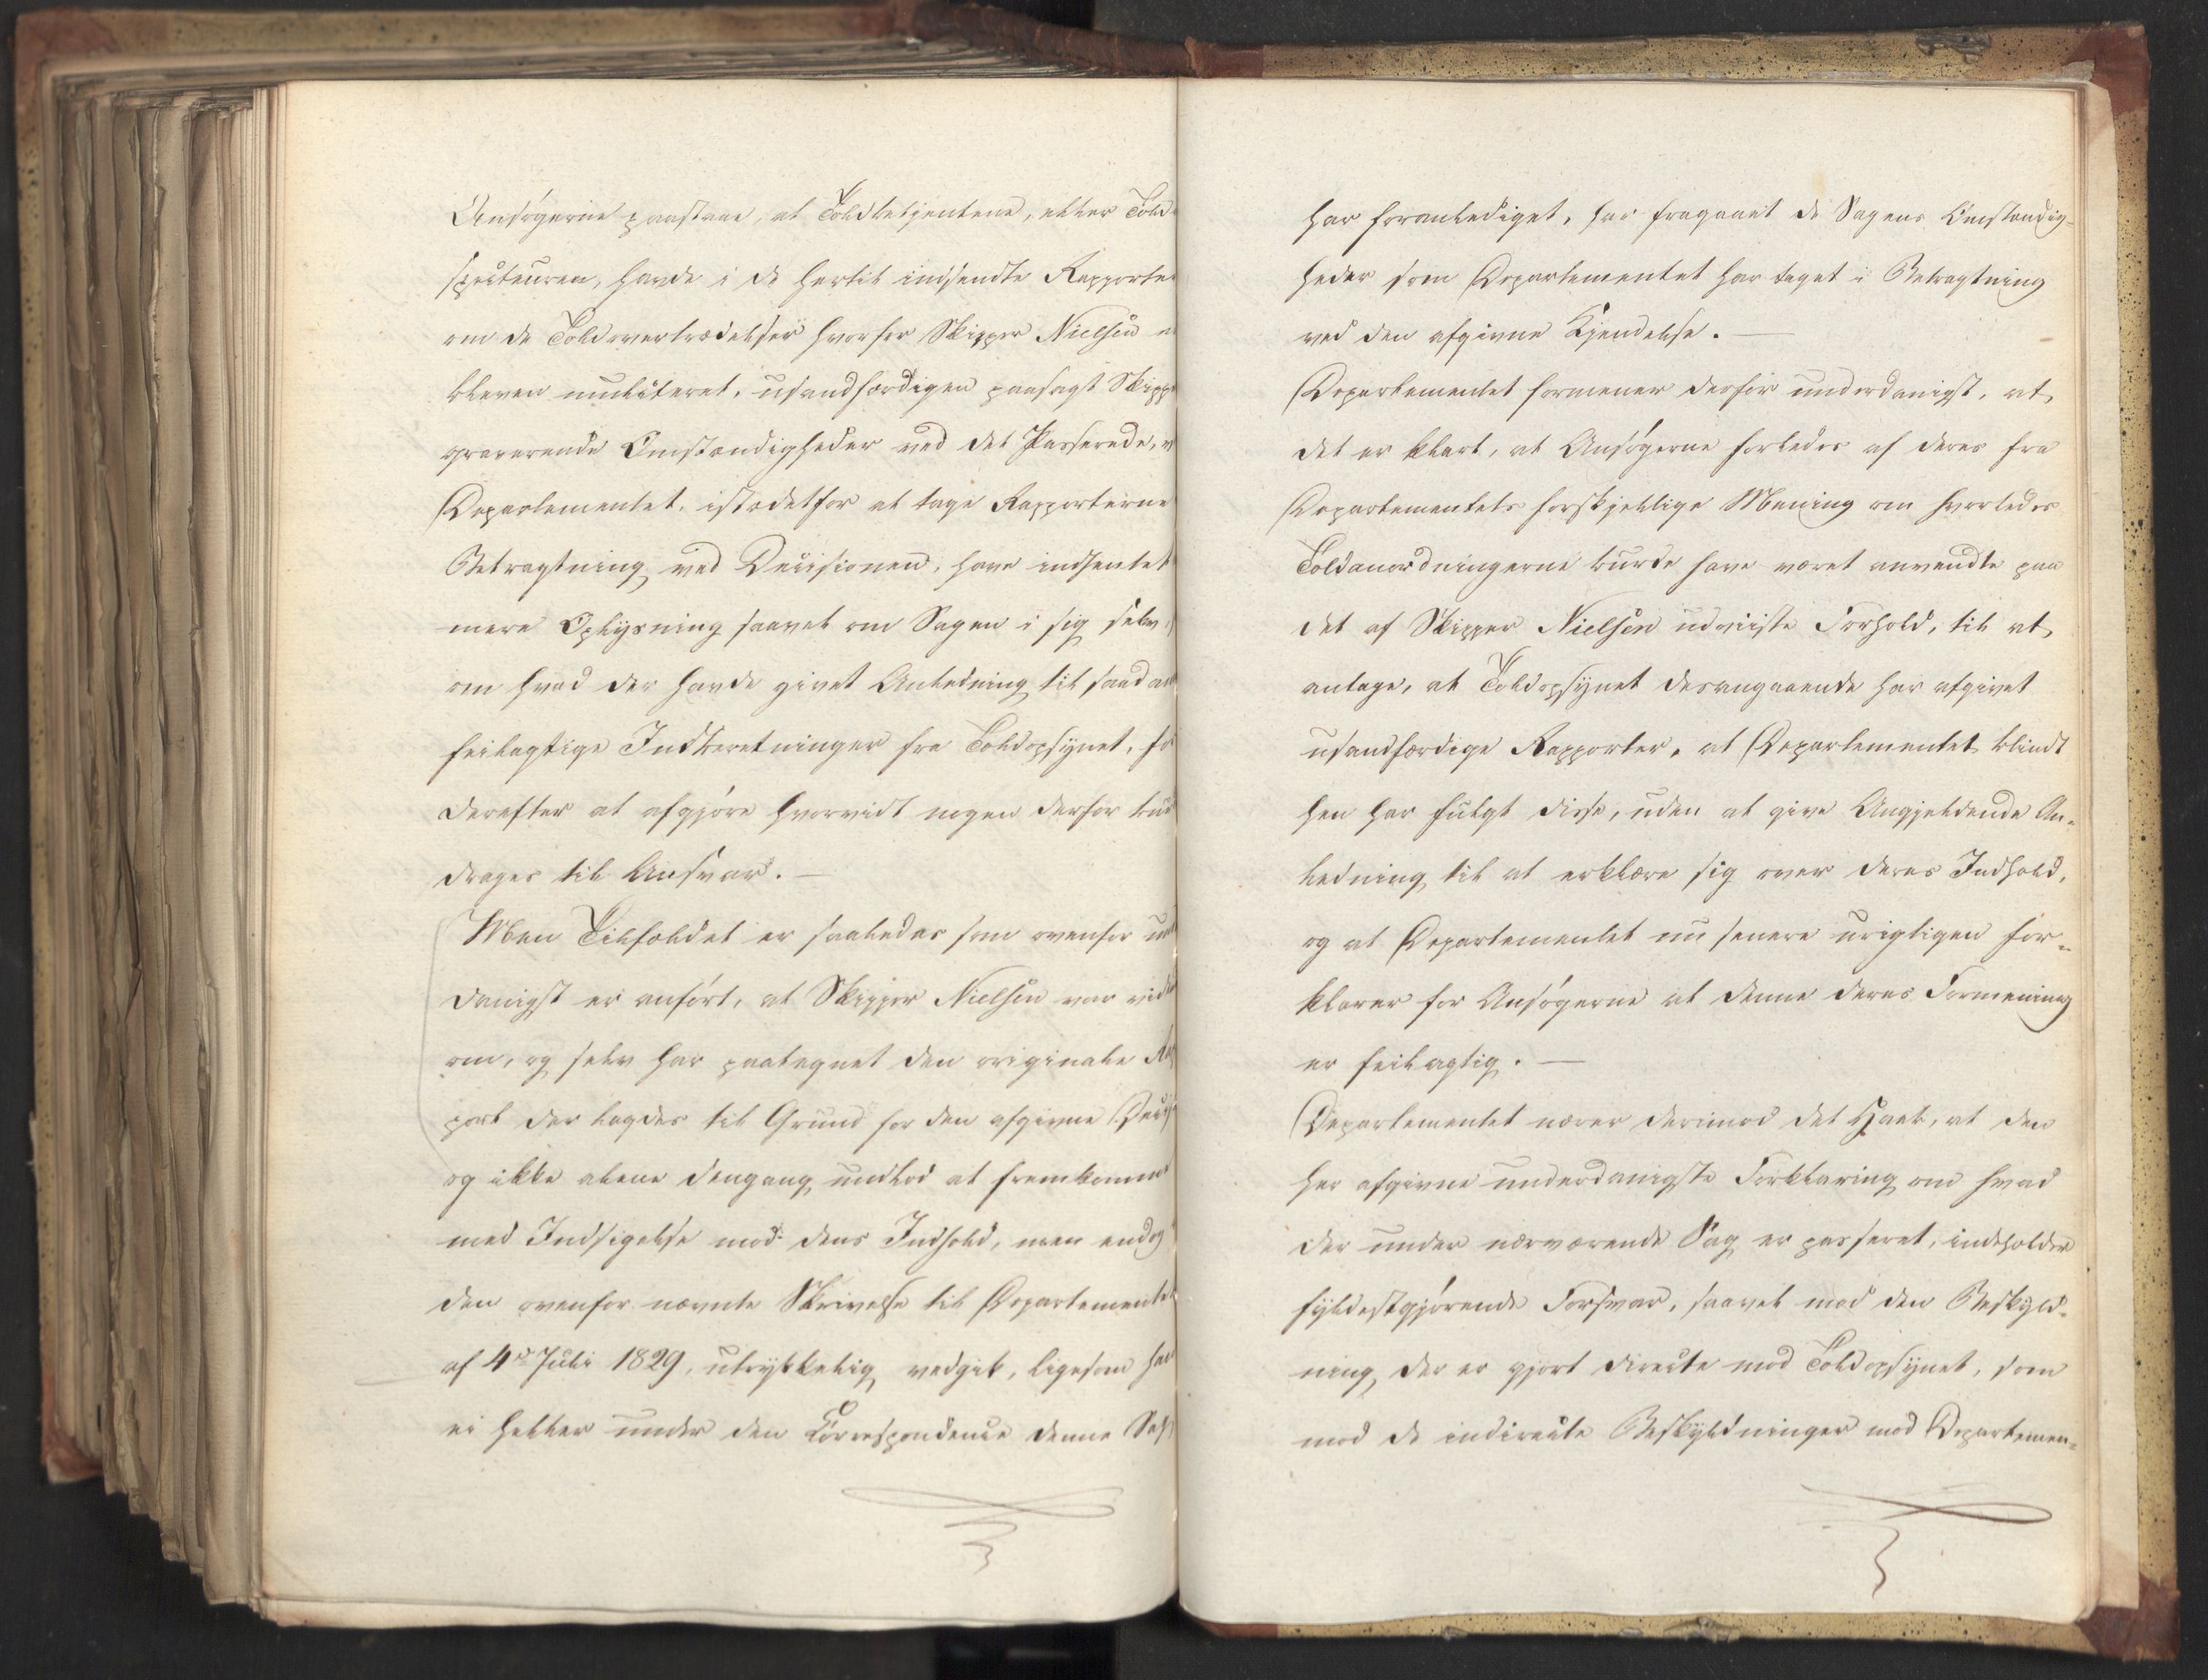 Ansøgerne paastaae, at Toldbetjentene, eller Told
specteuren, havde i de hertil indsendte Rapporter
om de Toldovertrædelser hvorfor Skipper Nielsen
bleven mulcteret, usandfærdigen paasagt Skipp
graverende Omstændigheder ved det Passerede,
Departementet, istedetfor at tage Rapporterne
Betragtning ved Decisionen, have indhentet
mere Oplysning saavel om Sagen i sig selv,
om hvad der havde givet Anledning til saadan
feilagtige Indberetninger fra Toldopsynet, for
derefter at afgjøre hvorvidt nogen derfor bud
drages til Ansvar. —
Men Tilfældet er saaledes som ovenfor un
danigst er anført, at Skipper Nielsen var vid
om, og selv har paategnet den originale Rap
port der lagdes til Grund for den afgivne Decis
og ikke alene dengang undlod at fremkomme
med Indsigelse mod dens Indhold, men endog
den ovenfor nævnte Skrivelse til Departementet
af 4de Juli 1829, udtrykkelig vedgik, ligesom han
ei heller under den Correspondence denne Sag
har foranlediget, har fragaaet de Sagens Omstændig-
heder som Departementet har taget i Betragtning
ved den afgivne Kjendelse. —
Departementet formener derfor underdanigst, at
det er klart, at Ansøgerne forledes af deres fra
Departementets forskjellige Mening om hvorledes
Toldanordningerne burde have været anvendte paa
det af Skipper Nielsen udviiste Forhold, til at
antage, at Toldopsynet desangaaende har afgivet
usandfærdige Rapporter, at Departementet blindt
hen har fulgt disse, uden at give Angjeldende An-
ledning til at erklære sig over deres Indhold,
og at Departementet nu senere urigtigen for-
klarer for Ansøgerne at denne deres Formening
er feilagtig. —
Departementet nærer derimod det Haab, at den
her afgivne underdanigste Forklaring om hvad
der under nærværende Sag er passeret, indeholder
fyldestgjørende Forsvar, saavel mod den Beskyld-
ning, der er gjort directe mod Toldopsynet, som
mod de indirecte Beskyldninger mod Departemen-